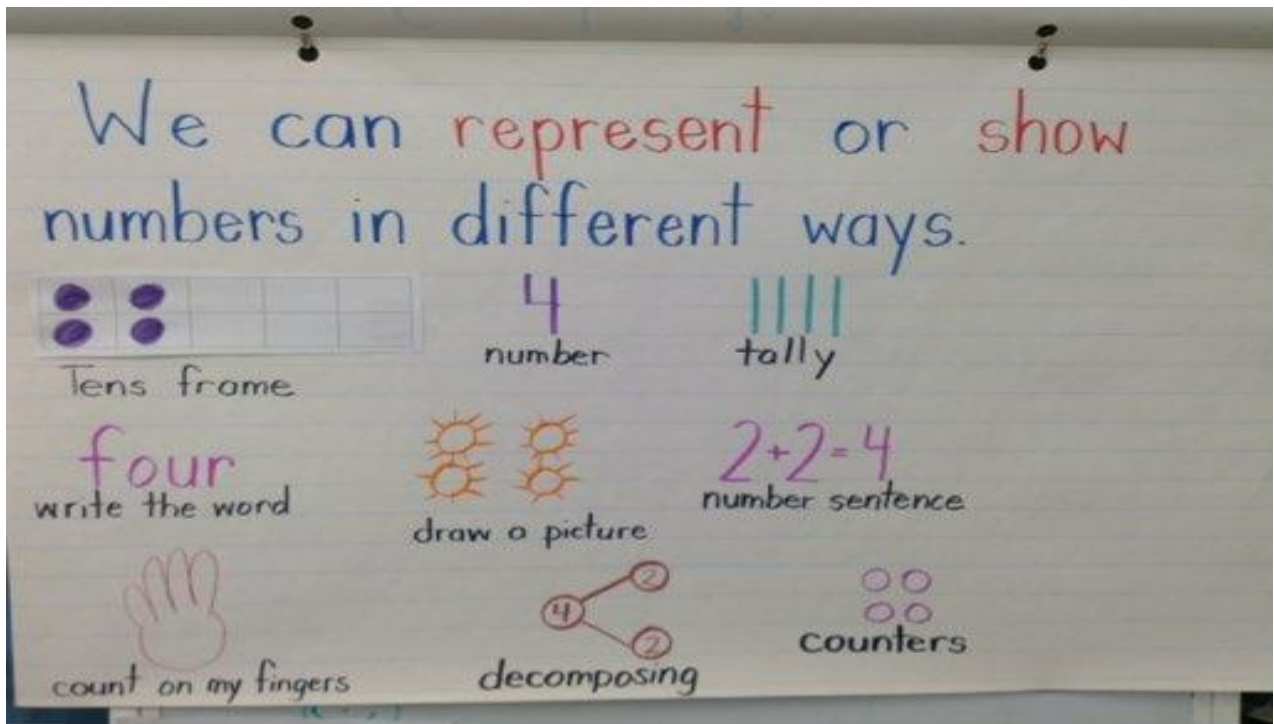 We can represent or show
numbers in different ways.
4
number
tally
Tens frame
four
write the word
draw a picture
2+2=4
number sentence
count on my fingers
4
2
2
decomposing
counters